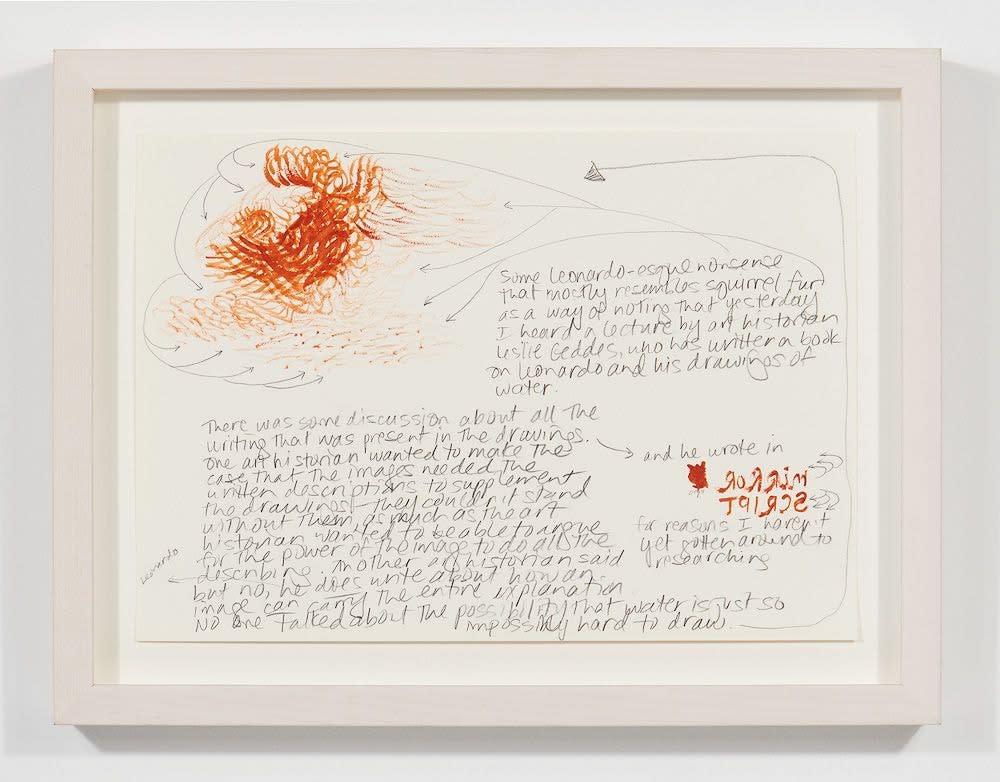 Some Leonardo-esque nonsense
that mostly resembles squirrel fur
as a way of noting that yesterday
I heard a lecture by art historian
Leslie Geddes, who has written a book
on Leonardo and his drawings of
water.
There was some discussion about all the
writing that was present in the drawings.
One art historian wanted to make the
case that the images needed the
written descriptions to supplement
the drawings – they couldn't stand
without them, as much as the art
historian wanted to be able to argue
for the power of the image to do all the
describing. Another art historian said
but no, he does write about how an
image can carry the entire explanation
No one talked about the possibility that water is just so
impossibly hard to draw.
Leonardo
and he wrote in
MIRROR
SCRIPT
for reasons I haven't
yet gotten around to
researching